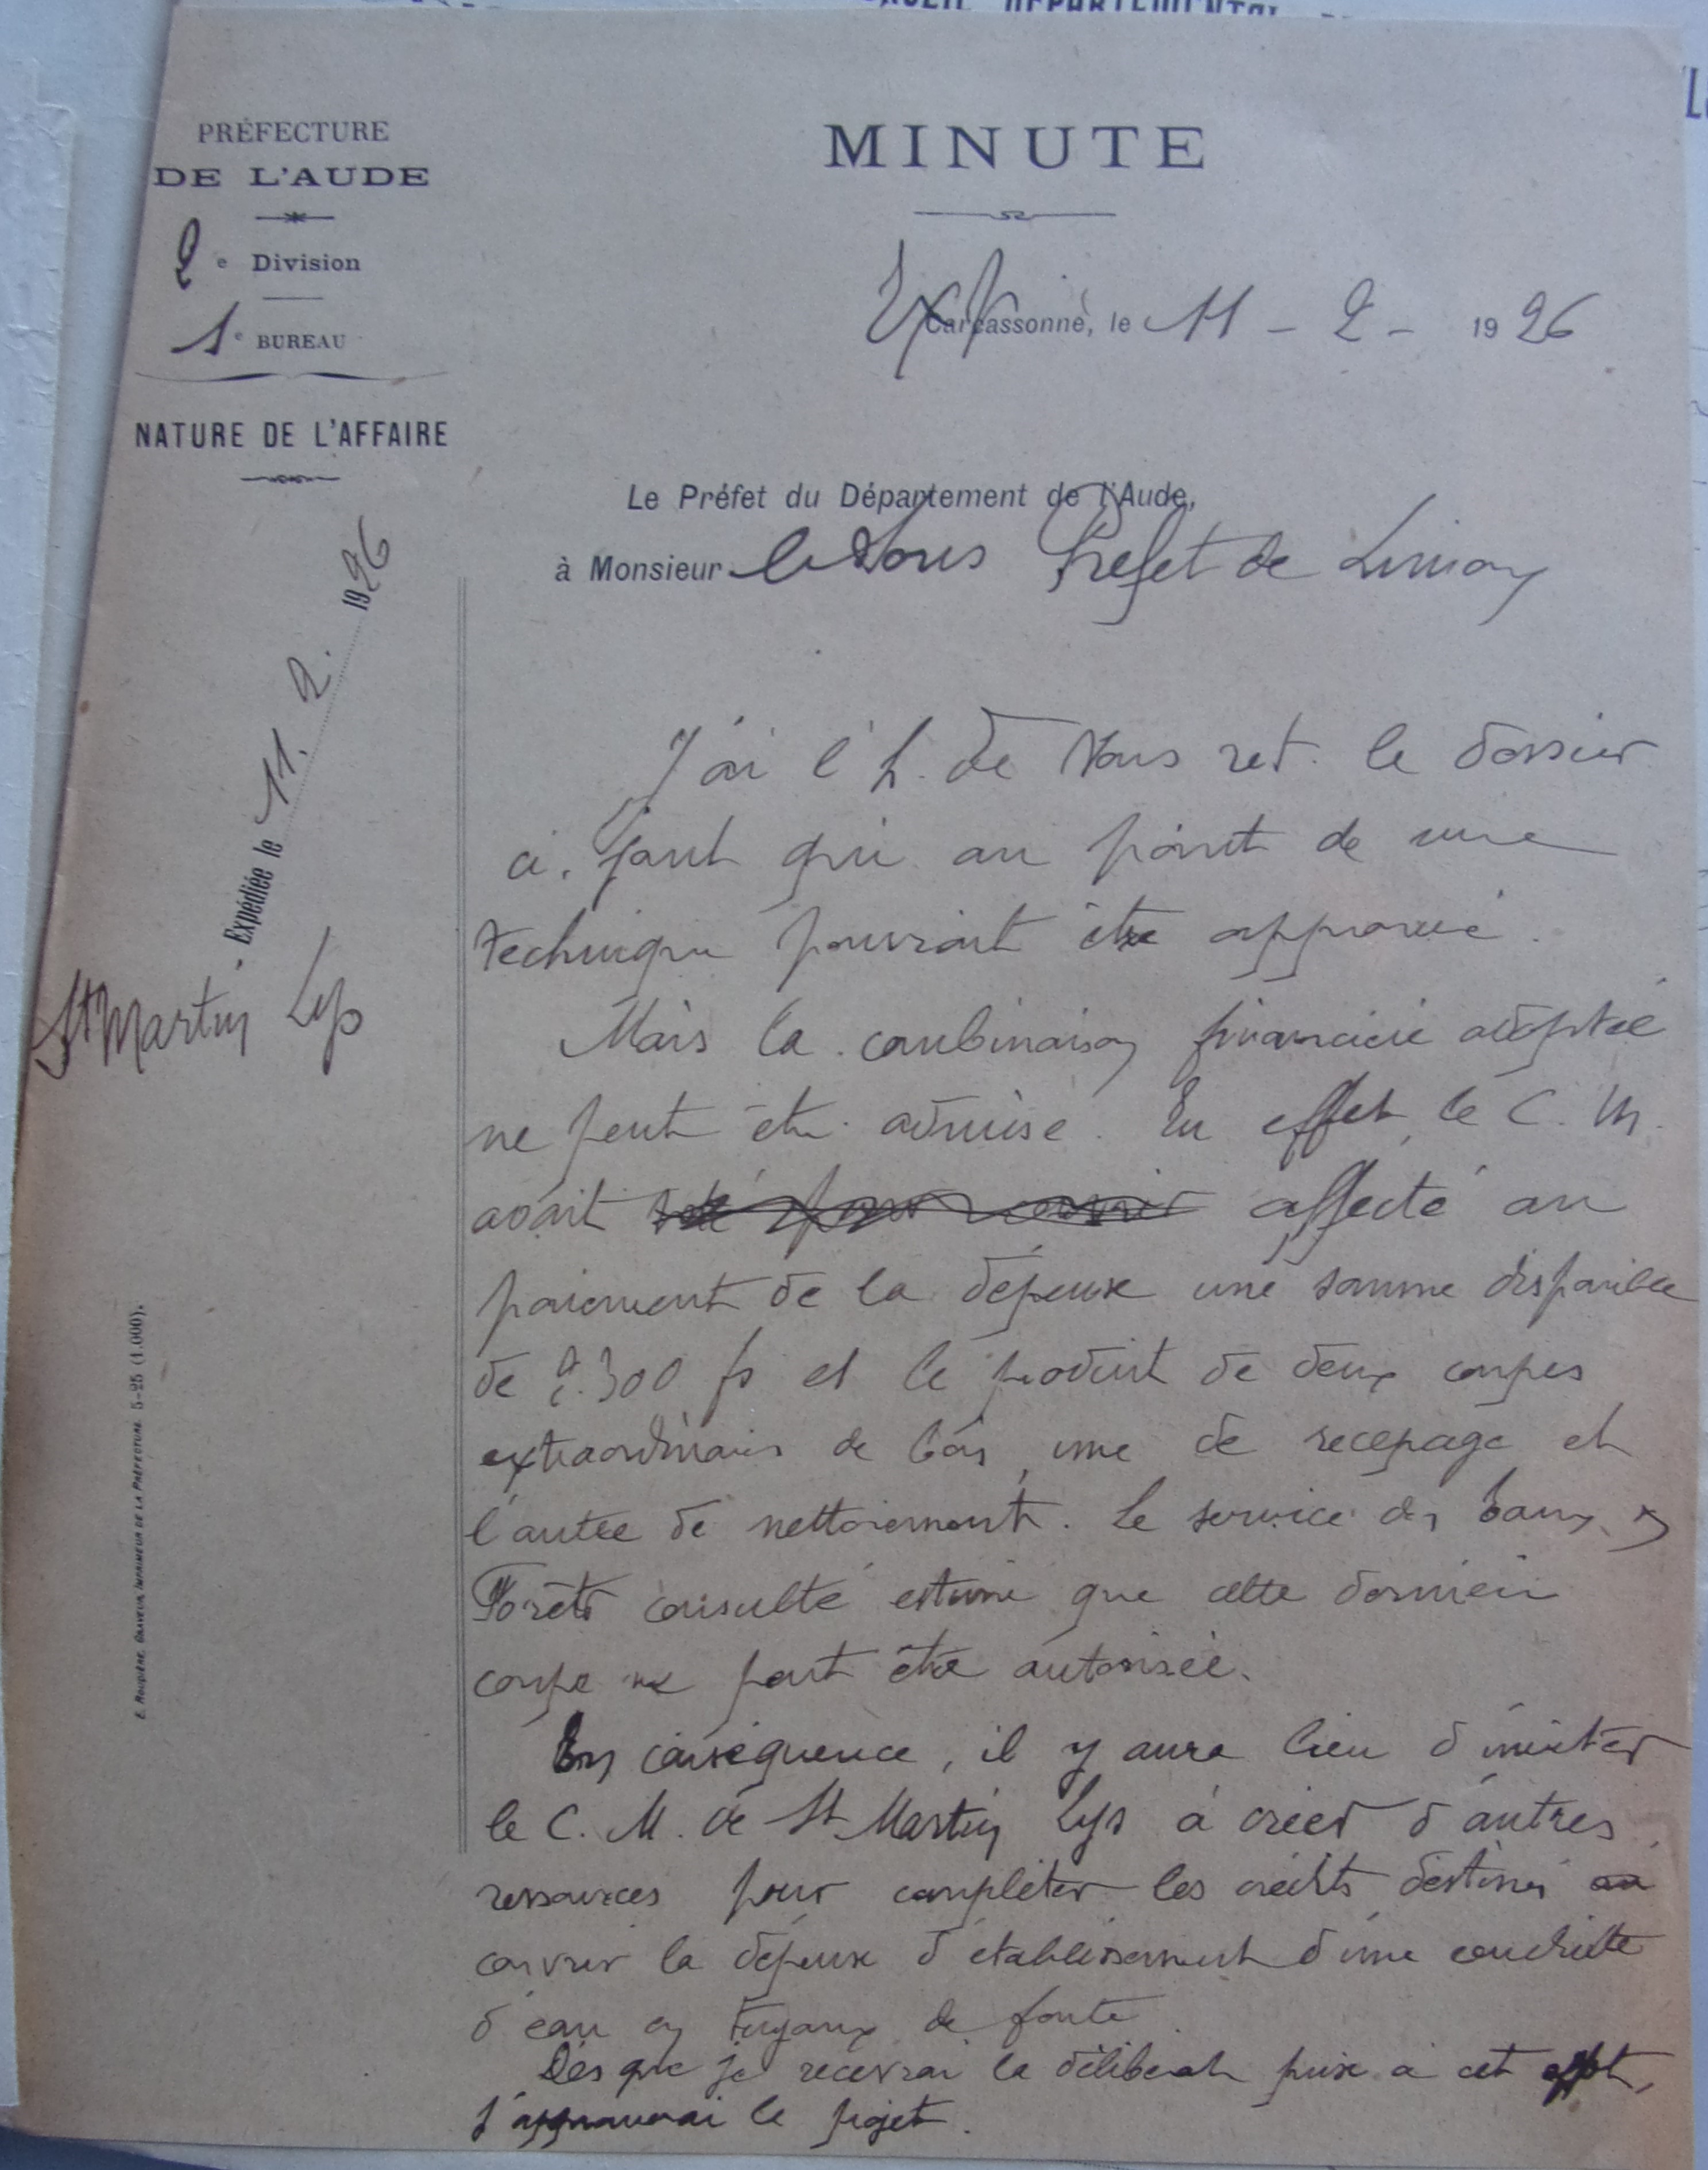 PRÉFECTURE
DE L'AUDE
2e Division
1e BUREAU
NATURE DE L'AFFAIRE
Expédiée le 11. 2. 1926
St Martin Lys
E. ROUDIÈRE, GRAVEUR, IMPRIMEUR DE LA PRÉFECTURE 5-25 (1.000).
MINUTE
Carcassonne, le 11 - 2 - 1926
Le Préfet du Département de l'Aude,
à Monsieur le Sous Préfet de Limoux
J'ai l'h. de vous ret. le dossier
ci. joint qui au point de vue
technique pourrait être approuvé.
Mais la combinaison financière adoptée
ne peut être admise. En effet, le C. M.
avait affecté au
paiement de la dépense une somme disponible
de 2.300 fs et le produit de deux coupes
extraordinaires de bois, une de recepage et
l'autre de nettoiement. Le service des Eaux &
Forêts consulté estime que cette dernière
coupe ne peut être autorisée.
En conséquence, il y aura lieu d'inviter
le C. M. de St Martin Lys à créer d'autres
ressources pour compléter les crédits destinés
couvrir la dépense d'établissement d'une conduite
d'eau en tuyaux de fonte.
Dès que je recevrai la délibérat prise à cet effet,
j'approuverai le projet.